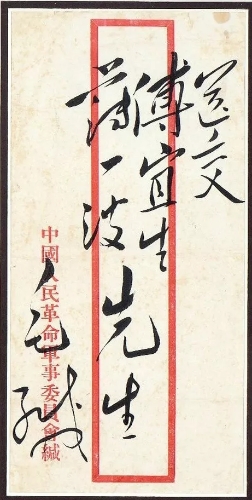 送交
傅宜生
薄一波
先生
中國人民革命軍事委員會緘
毛緘